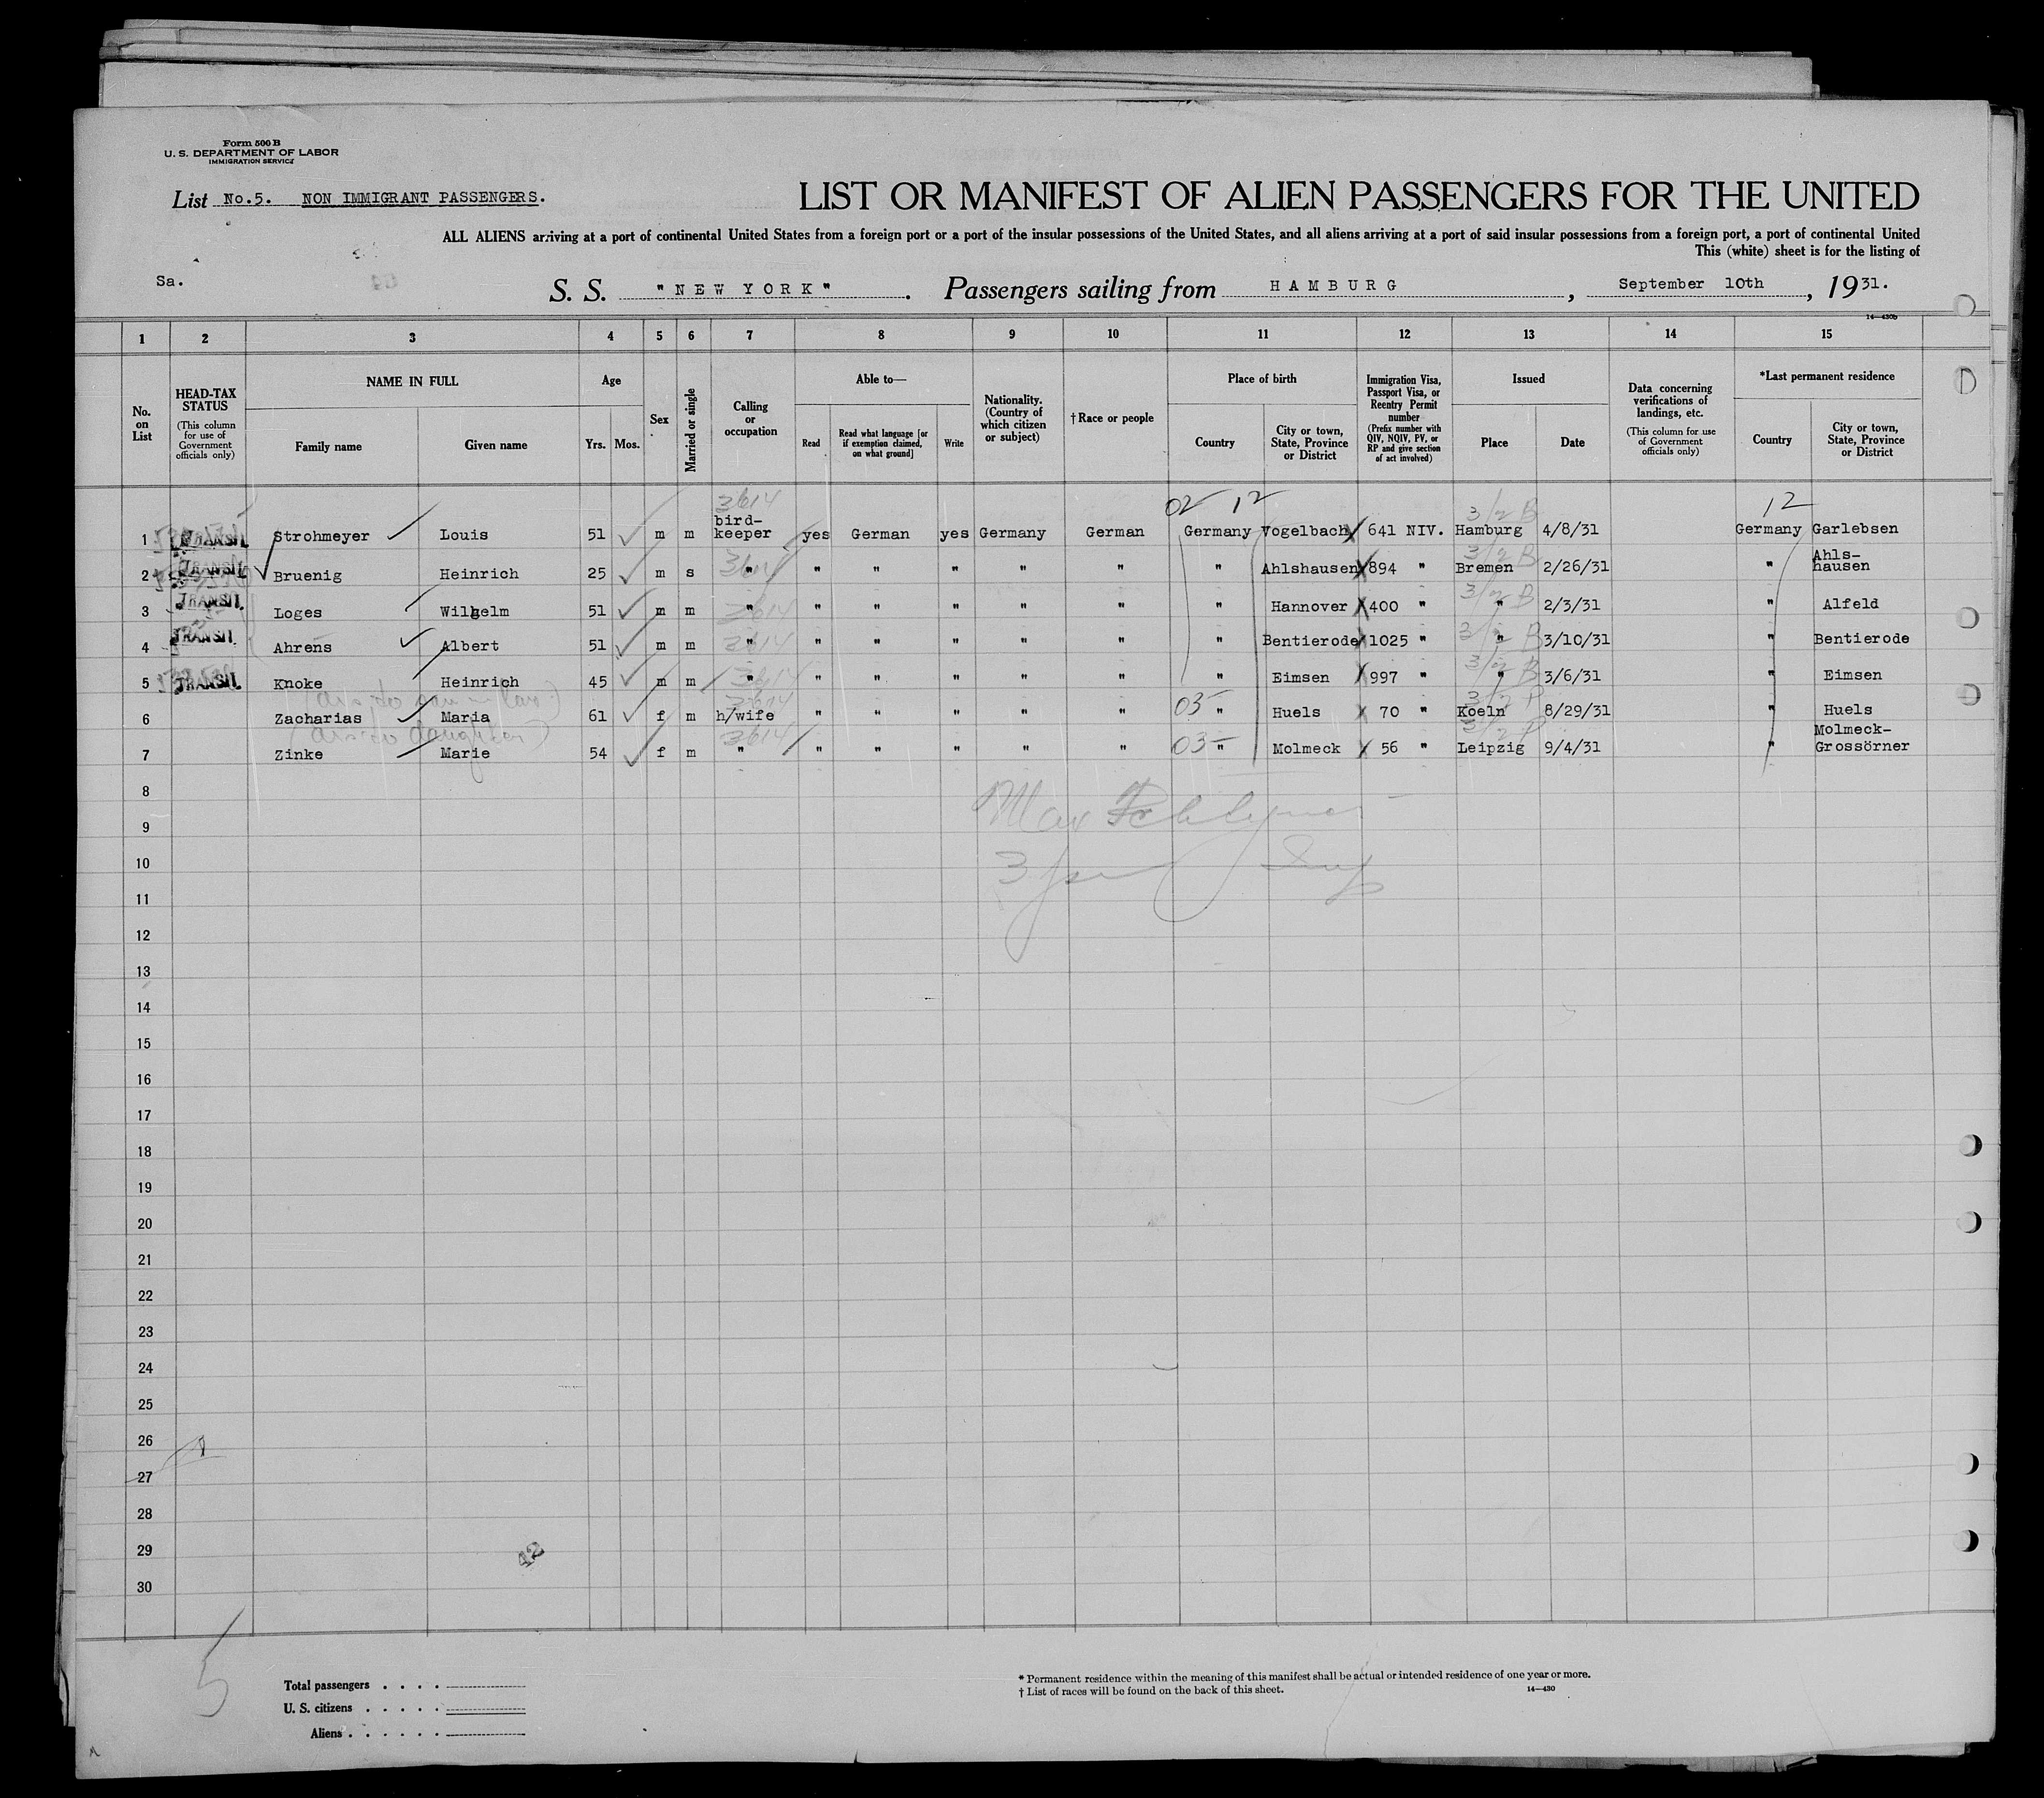 Form 500 B
U. S. DEPARTMENT OF LABOR
IMMIGRATION SERVICE
List No.5. NON IMMIGRANT PASSENGERS.
LIST OR MANIFEST OF ALIEN PASSENGERS FOR THE UNITED
ALL ALIENS arriving at a port of continental United States from a foreign port or a port of the insular possessions of the United States, and all aliens arriving at a port of said insular possessions from a foreign port, a port of continental United
This (white) sheet is for the listing of
Sa.
S. S. "NEW YORK". Passengers sailing from HAMBURG, September 10th, 1931.
14—430b
1 2 3 4 5 6 7 8 9 10 11 12 13 14 15
No. on List
HEAD-TAX STATUS
(This column for use of Government officials only)
NAME IN FULL
Family name
Given name
Age
Yrs.
Mos.
Sex
Married or single
Calling or occupation
Able to—
Read
Read what language [or if exemption claimed, on what ground]
Write
Nationality. (Country of which citizen or subject)
† Race or people
Place of birth
Country
City or town, State, Province or District
Immigration Visa, Passport Visa, or Reentry Permit number
(Prefix number with QIV, NQIV, PV, or RP and give section of act involved)
Issued
Place
Date
Data concerning verifications of landings, etc.
(This column for use of Government officials only)
*Last permanent residence
Country
City or town, State, Province or District
3614 02 12 3/2 B 12
1 TRANSIT. Strohmeyer Louis 51 m m bird-keeper yes German yes Germany German Germany Vogelbach 641 NIV. Hamburg 4/8/31 Germany Garlebsen
3614 3/2 B
2 TRANSIT. Bruenig Heinrich 25 m s " " " " " " " Ahlshausen 894 " Bremen 2/26/31 " Ahls-hausen
3614 3/2 B
3 TRANSIT. Loges Wilhelm 51 m m " " " " " " " Hannover 400 " " 2/3/31 " Alfeld
3614 3/2 B
4 TRANSIT. Ahrens Albert 51 m m " " " " " " " Bentierode 1025 " " 3/10/31 " Bentierode
3614 3/2 B
5 TRANSIT. Knoke Heinrich 45 m m " " " " " " " Eimsen 997 " " 3/6/31 " Eimsen
3614 03- 3/2 P
6 Zacharias Maria 61 f m h/wife " " " " " " Huels 70 " Koeln 8/29/31 " Huels
daughter)
3614 03- 3/2 P
7 Zinke Marie 54 f m " " " " " " " Molmeck 56 " Leipzig 9/4/31 " Molmeck-Grossörner
8
Max
9
10
11
12
13
14
15
16
17
18
19
20
21
22
23
24
25
26
27
28
29
42
30
5
Total passengers . . . .
U. S. citizens . . . . .
Aliens . . . . . .
* Permanent residence within the meaning of this manifest shall be actual or intended residence of one year or more.
† List of races will be found on the back of this sheet.
14—430